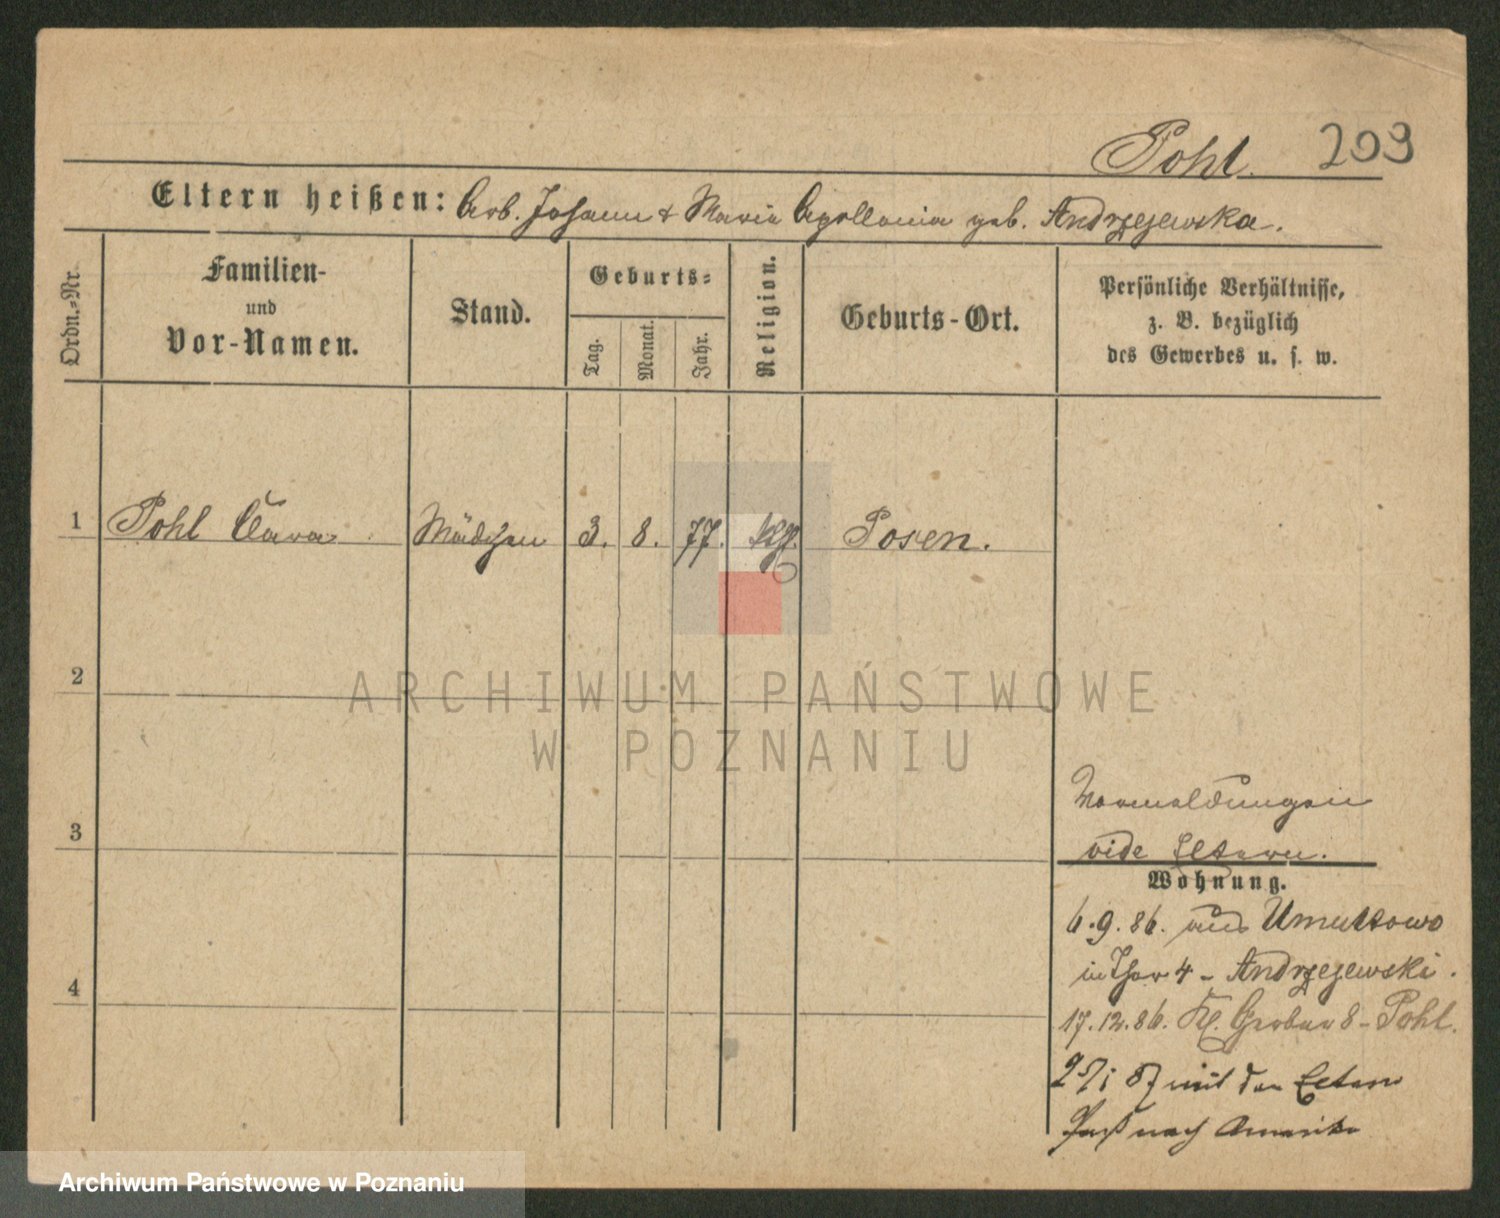 Pohl. 209
Eltern heißen: Arb. Johann & Maria Apollonia geb. Andrzejewska.
Ordn.=Nr.
Familien-
und
Vor-Namen.
Stand.
Geburts=
Tag.
Monat.
Jahr.
Religion.
Geburts-Ort.
Persönliche Verhältnisse,
z. B. bezüglich
des Gewerbes u. s. w.
1 Pohl Clara Mädchen 3. 8. 77. Posen.
2
3
4
ARCHIWUM PAŃSTWOWE
W POZNANIU
Vormeldungen
vide Eltern.
Wohnung.
6.9.86. aus Umultowo
in Thor 4 - Andrzejewski.
17.12.86. Kl. Gerber 8 - Pohl.
87 mit den Eltern
nach Amerika
Archiwum Państwowe w Poznaniu